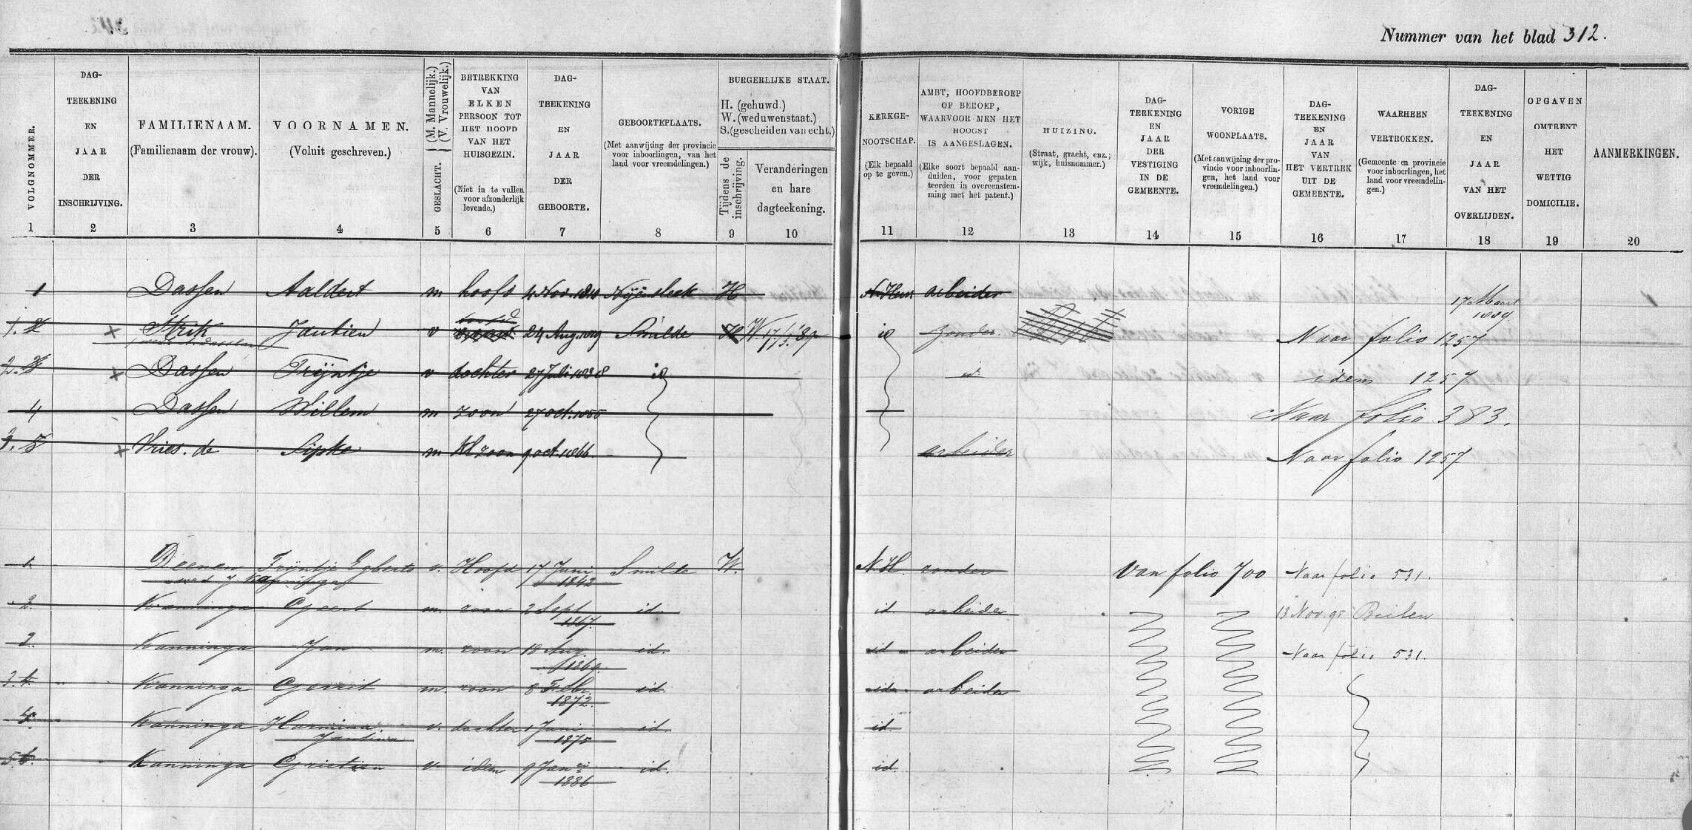 Nummer van het blad 312.
VOLGNOMMER. 1
DAG-TEEKENING EN JAAR DER INSCHRIJVING. 2
FAMILIENAAM. (Familienaam der vrouw). 3
VOORNAMEN. (Voluit geschreven.) 4
GESLACHT. (M. Mannelijk.) (V. Vrouwelijk.) 5
BETREKKING VAN ELKEN PERSOON TOT HET HOOFD VAN HET HUISGEZIN. (Niet in te vullen voor afzonderlijk levende.) 6
DAG-TEEKENING EN JAAR DER GEBOORTE. 7
GEBOORTEPLAATS. (Met aanwijzing der provincie voor inboorlingen, van het land voor vreemdelingen.) 8
BURGERLIJKE STAAT. H. (gehuwd.) W. (weduwenstaat.) S. (gescheiden van echt.)
Tijdens de inschrijving. 9
Veranderingen en hare dagteekening. 10
KERKGE-NOOTSCHAP. (Elk bepaald op te geven.) 11
AMBT, HOOFDBEROEP OF BEROEP, WAARVOOR MEN HET HOOGST IS AANGESLAGEN. (Elke soort bepaald aanduiden, voor gepatenteerden in overeenstemming met het patent.) 12
HUIZING. (Straat, gracht, enz.; wijk, huisnommer.) 13
DAG-TEEKENING EN JAAR DER VESTIGING IN DE GEMEENTE. 14
VORIGE WOONPLAATS. (Met aanwijzing der provincie voor inboorlingen, het land voor vreemdelingen.) 15
DAG-TEEKENING EN JAAR VAN HET VERTREK UIT DE GEMEENTE. 16
WAARHEEN VERTROKKEN. (Gemeente en provincie voor inboorlingen, het land voor vreemdelingen.) 17
DAG-TEEKENING EN JAAR VAN HET OVERLIJDEN. 18
OPGAVEN OMTRENT HET WETTIG DOMICILIE. 19
AANMERKINGEN. 20
1 Dassen Aaldert m hoofd 4 Nov. 1810 Nijensleek H N. Herv. arbeider 17 Maart 1889
1. Strik Jantien v 24 Aug. 1819 Smilde W 17/3 '89 id zonder Naar folio 1257
2. x Dassen Trijntje v dochter 27 Juli 1838 id idem 1257
4 Dassen Willem m zoon 27 oct. 1855 Naar folio 383.
3. x Vries. de Sipke m Kl zoon 9 oct. 1866 arbeider Naar folio 1257
1. Deenen Trijntje Egberts v. Hoofd 17 Juni 1842 Smilde W. N.H. zonder Van folio 700 Naar folio 531.
2. Kanninga Geert m. zoon 2 Sept 1867. id. id arbeider 13 Nov. 95 Beilen
2. Kanninga Jan m. zoon 18 Aug. 1869 id. id arbeider Naar folio 531.
3. Kanninga Gerrit m. zoon 8 Febr. 1872. id id. arbeider
4. Kanninga Harmina Jantina v. dochter 1 Juni 1875 id id
5. Kanninga Grietien v. idem 9 Jan. 1886 id. id.